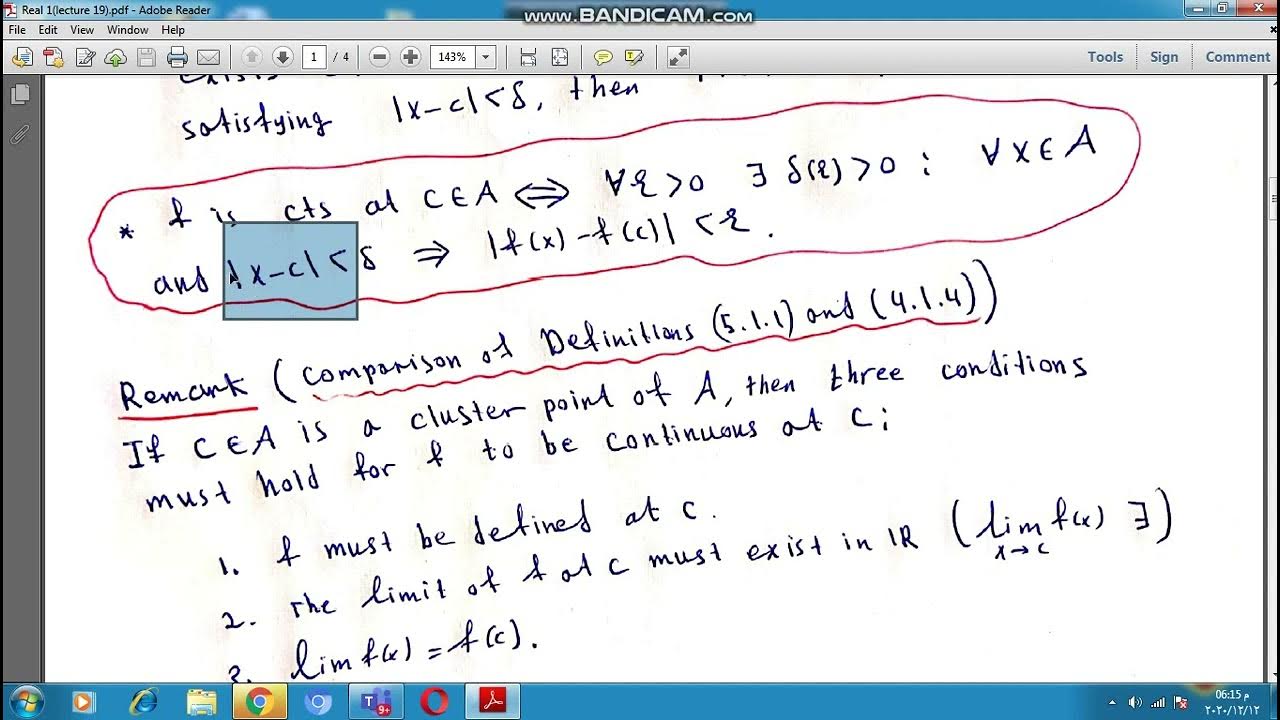 Real 1(lecture 19).pdf - Adobe Reader
WWW.BANDICAM.COM
File Edit View Window Help
1 / 4 143% Tools Sign Comment
satisfying |x-c|<δ, then
* f is cts at c∈A ⟺ ∀ε>0 ∃ δ(ε)>0 : ∀x∈A
and |x-c|<δ ⇒ |f(x)-f(c)|<ε.
Remark (Comparison of Definitions (5.1.1) and (4.1.4))
If c∈A is a cluster point of A, then three conditions
must hold for f to be continuous at c:
1. f must be defined at c.
2. The limit of f at c must exist in IR (lim f(x) ∃)
x→c
3. lim f(x) = f(c).
9+
06:15 م
٢٠٢٠/١٢/١٢